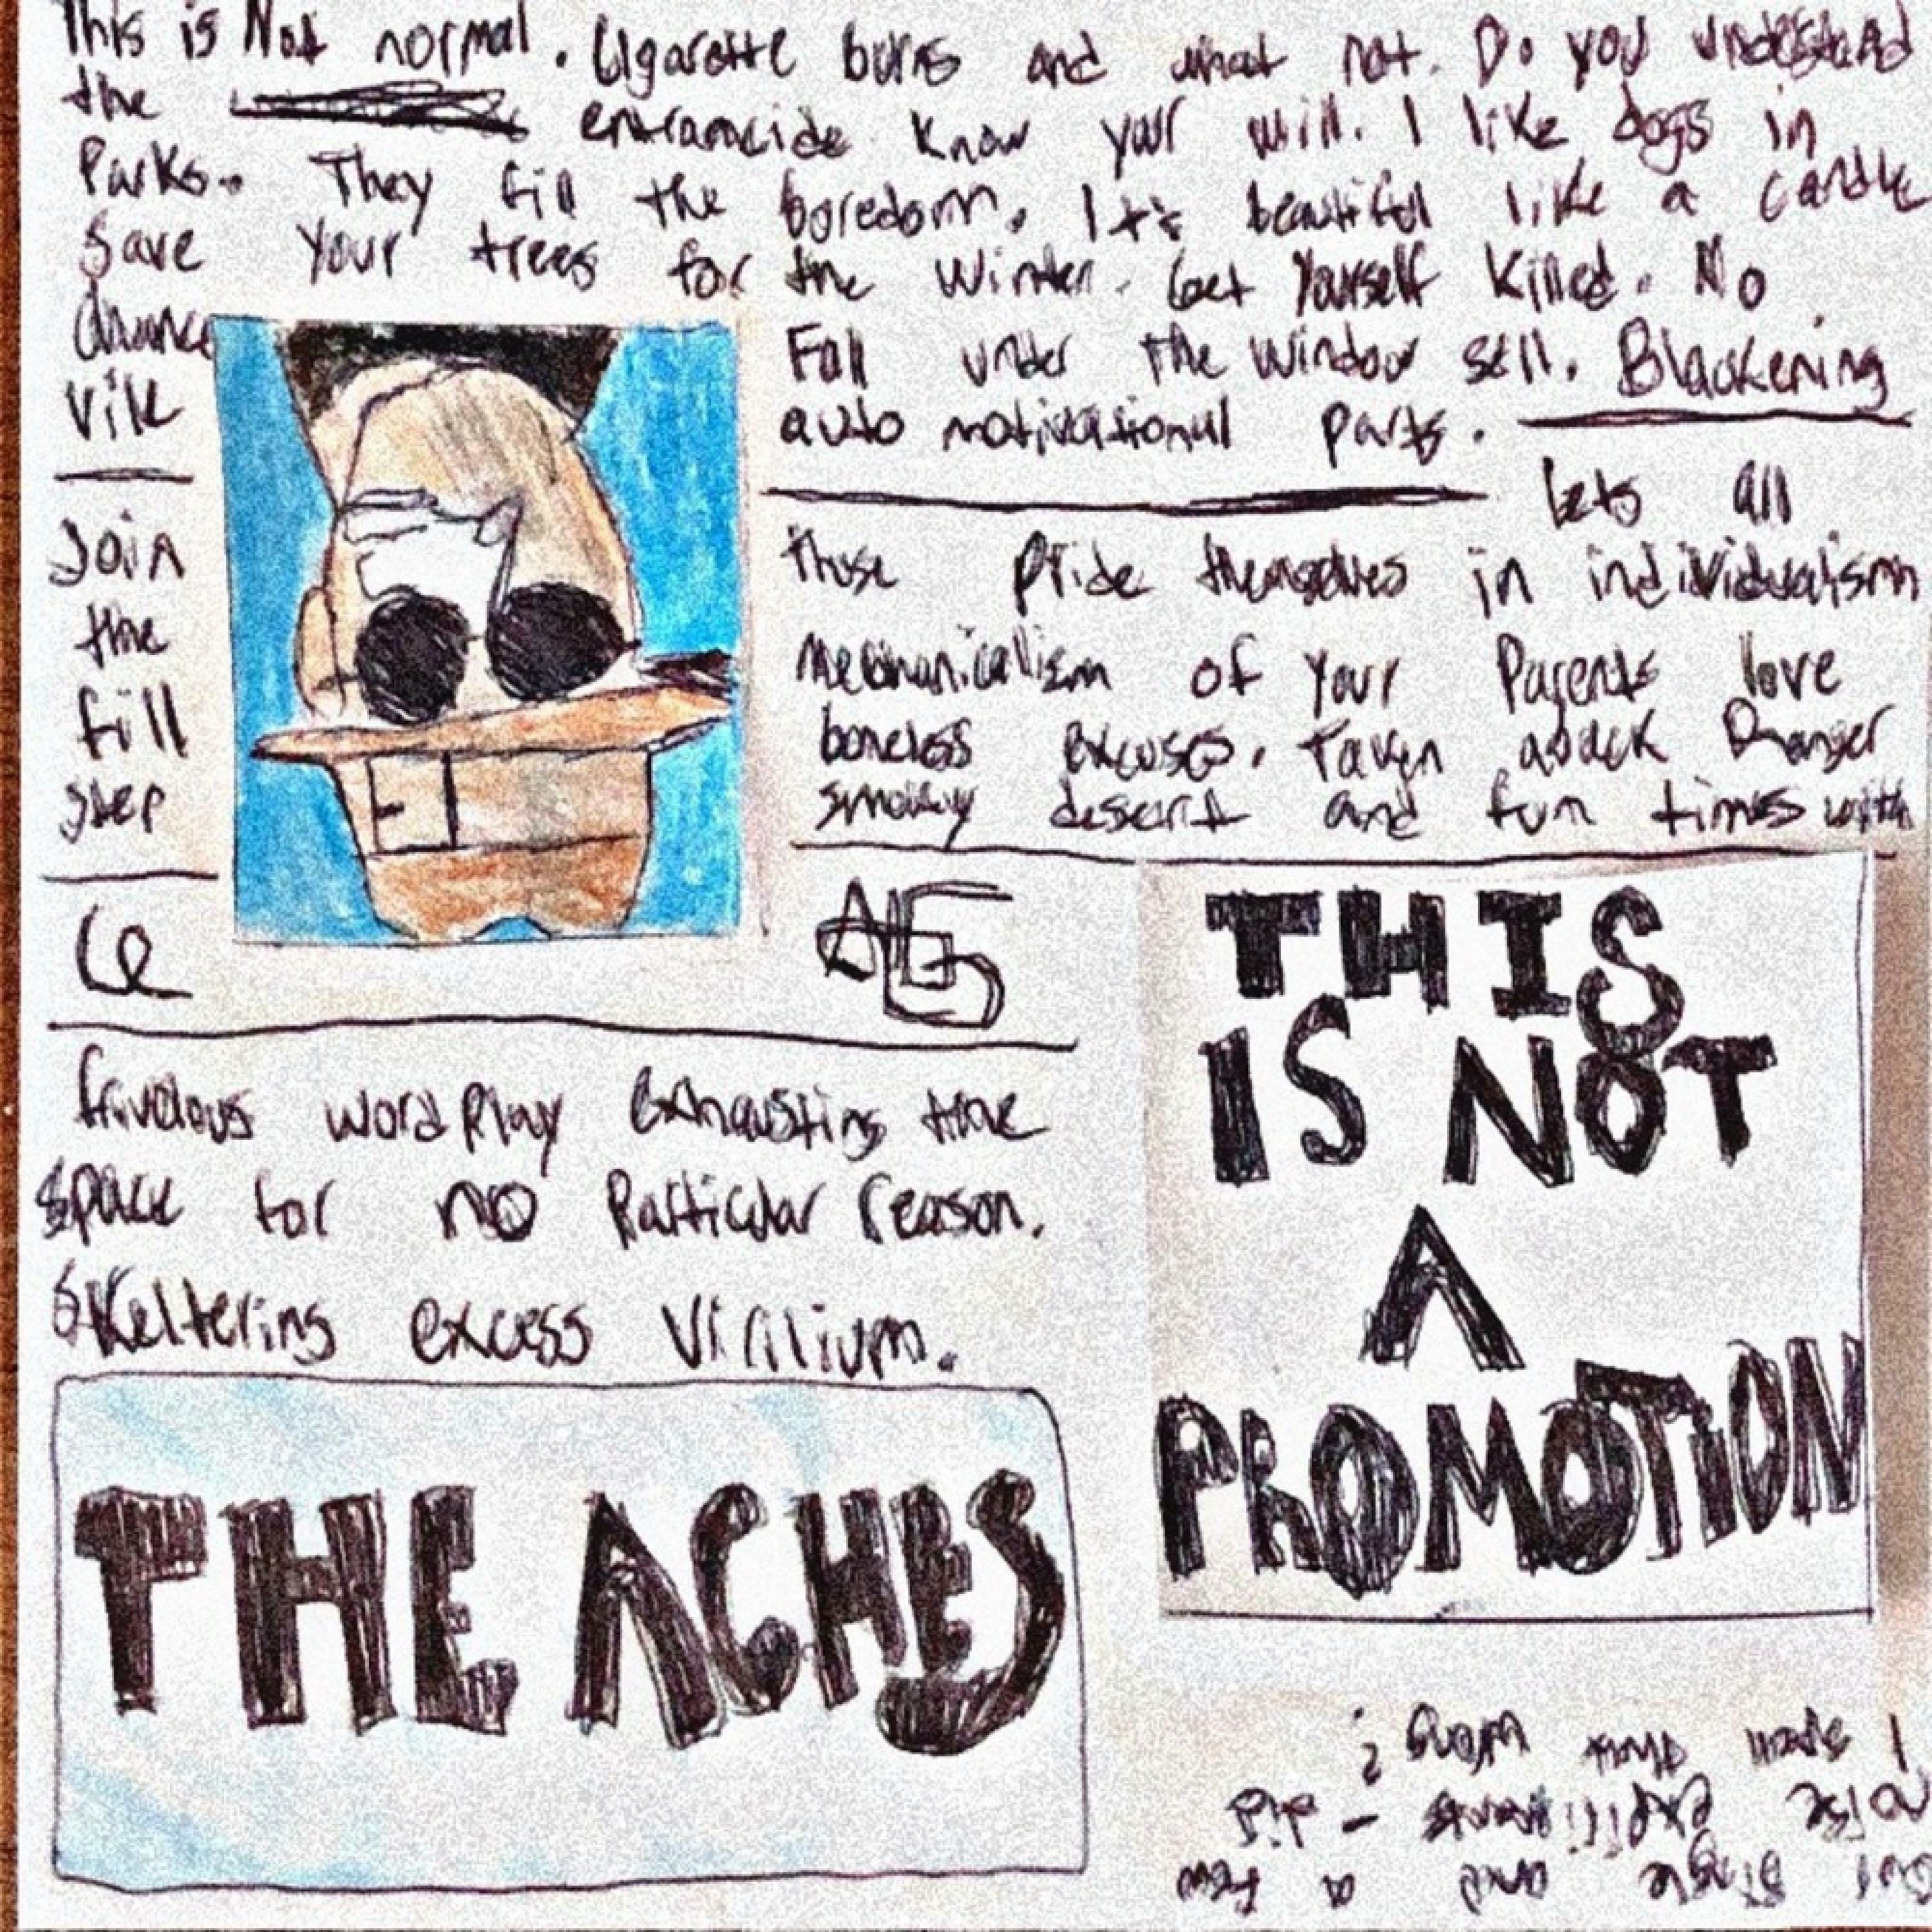 This is Not normal. Cigarette burns and what not. Do you understand
the entramcide know your will. I like dogs in
Parks. They fill the boredom. It's beautiful like a candle
Save your trees for the Winter. Get Yourself Killed. No
chance Fall under the Window sell. Blackening
Vile auto motivational parts.
Lets all
Join those Pride themselves in individualism
the mechanicalism of your Parents love
fill boneless excuses. Taken aback Danger
step smokey desert and fun times with
frivolous word Play exhausting the
space for no Particular reason.
Skeltering excess Virilium.
THIS
IS NOT
A
PROMOTION
THE ACHES
single and a few
noise experiments - did
I spell that wrong?